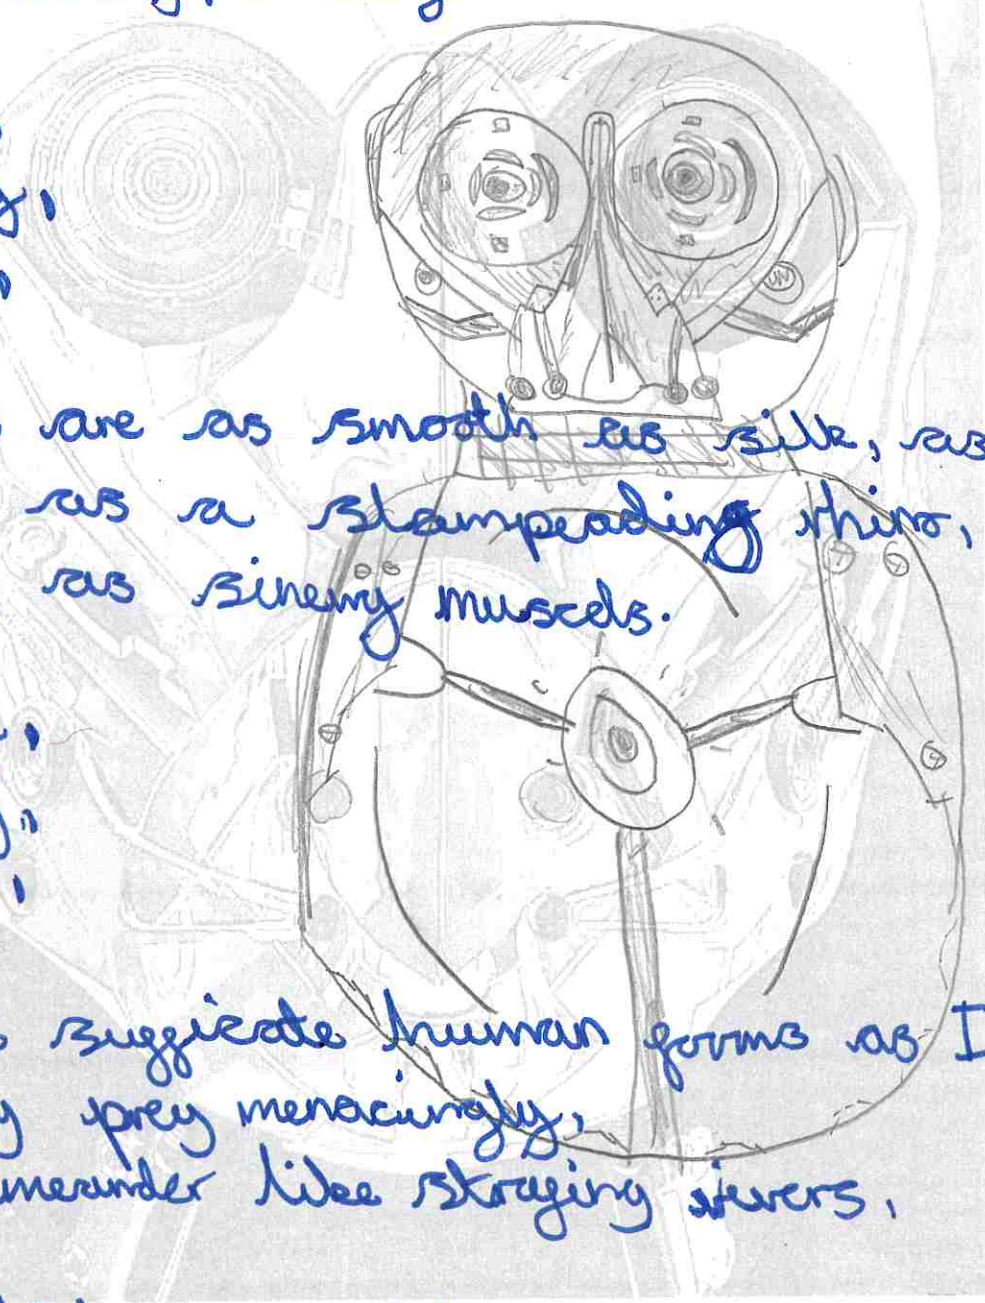 are as smooth as silk, as
as a stampeading rhino,
as sinewy muscels.
sufficate human forms as I
prey menacingly,
meander like straying rivers,